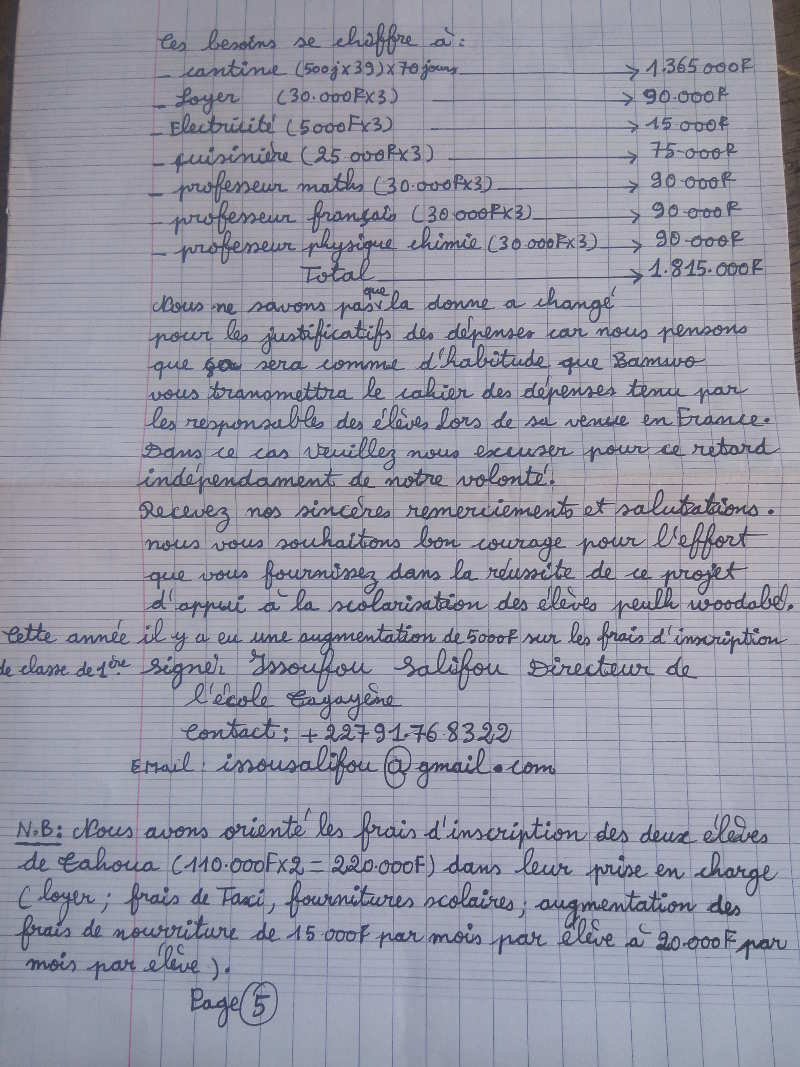 Ces besoins se chiffre à :
- cantine (500f x 39) x 70 jours → 1.365 000F
- Loyer (30.000F x 3) → 90.000F
- Electricité (5000F x 3) → 15.000F
- quisinière (25 000F x 3) → 75.000F
- professeur maths (30.000F x 3) → 90.000F
- professeur français (30 000F x 3) → 90.000F
- professeur physique chimie (30 000F x 3) → 90.000F
Total → 1.815.000F
Nous ne savons pas que la donne a changé
pour les justificatifs des dépenses car nous pensons
que sera comme d'habitude que Bamwo
vous transmettra le cahier des dépenses tenu par
les responsables des élèves lors de sa venue en France.
Dans ce cas veuillez nous excuser pour ce retard
indépendament de notre volonté.
Recevez nos sincères remerciements et salutations.
nous vous souhaitons bon courage pour l'effort
que vous fournissez dans la réussite de ce projet
d'appui à la scolarisation des élèves peulh woodabé.
Cette année il y a eu une augmentation de 5000F sur les frais d'inscription
de classe de 1ère. Signer Issoufou Salifou Directeur de
l'école Tagayène
Contact : +22791.76.8322
EMail : issousalifou@gmail.com
N.B: Nous avons orienté les frais d'inscription des deux élèves
de Tahoua (110.000F x 2 = 220.000F) dans leur prise en charge
(loyer ; frais de Taxi, fournitures scolaires ; augmentation des
frais de nourriture de 15 000F par mois par élève à 20.000F par
mois par élève).
Page 5